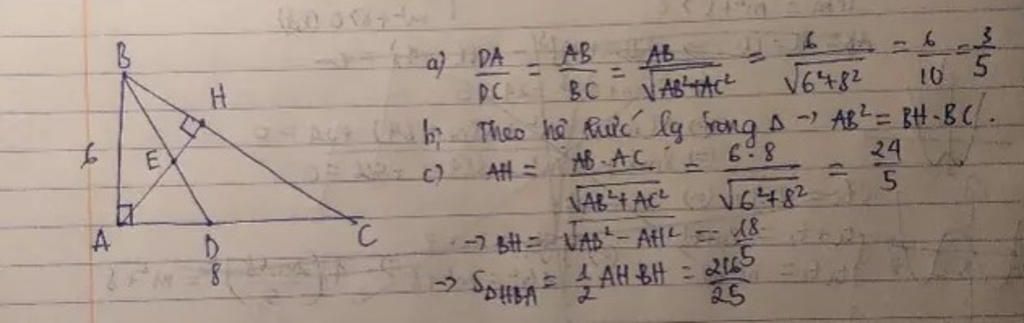 B
H
6
E
A
D
C
8
a) DA/DC = AB/BC = AB/√(AB²+AC²) = 6/√(6²+8²) = 6/10 = 3/5
b, Theo hệ thức lg trong Δ → AB² = BH·BC.
c) AH = AB·AC/√(AB²+AC²) = 6·8/√(6²+8²) = 24/5
→ BH = √(AB²-AH²) = 18/5
→ SΔHBA = 1/2 AH BH = 216/25